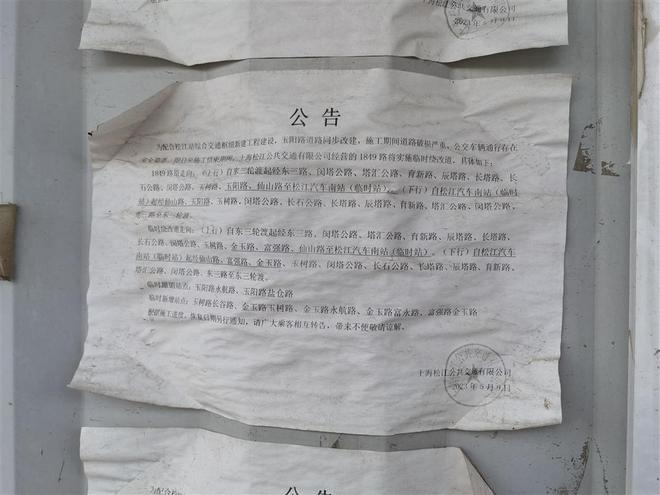 上海松江公共交通有限公司
2023年5月9日
公告
为配合松江站综合交通枢纽新建工程建设，玉阳路道路同步改建，施工期间道路破损严重，公交车辆通行存在
安全隐患，即日至施工结束期间，上海松江公共交通有限公司经营的1849路将实施临时绕改道，具体如下：
1849路原走向：（上行）自东三轮渡起经东三路、闵塔公路、塔汇公路、育新路、辰塔路、长塔路、长
石公路、闵塔公路、玉树路、玉阳路、仙山路至松江汽车南站（临时站）。（下行）自松江汽车南站（临时
站）起经仙山路、玉阳路、玉树路、闵塔公路、长石公路、长塔路、辰塔路、育新路、塔汇公路、闵塔公路、
东三路至东三轮渡。
临时绕改道走向：（上行）自东三轮渡起经东三路、闵塔公路、塔汇公路、育新路、辰塔路、长塔路、
长石公路、闵塔公路、玉树路、金玉路、富强路、仙山路至松江汽车南站（临时站）。（下行）自松江汽车
南站（临时站）起经仙山路、富强路、金玉路、玉树路、闵塔公路、长石公路、长塔路、辰塔路、育新路、
塔汇公路、闵塔公路、东三路至东三轮渡。
临时撤销站点：玉阳路永航路、玉阳路盐仓路
临时新增站点：玉树路长谷路、金玉路玉树路、金玉路永航路、金玉路富永路、富强路金玉路
根据施工进度，恢复日期另行通知，请广大乘客相互转告，带来不便敬请谅解。
上海松江公共交通有限公司
2023年5月9日
公告